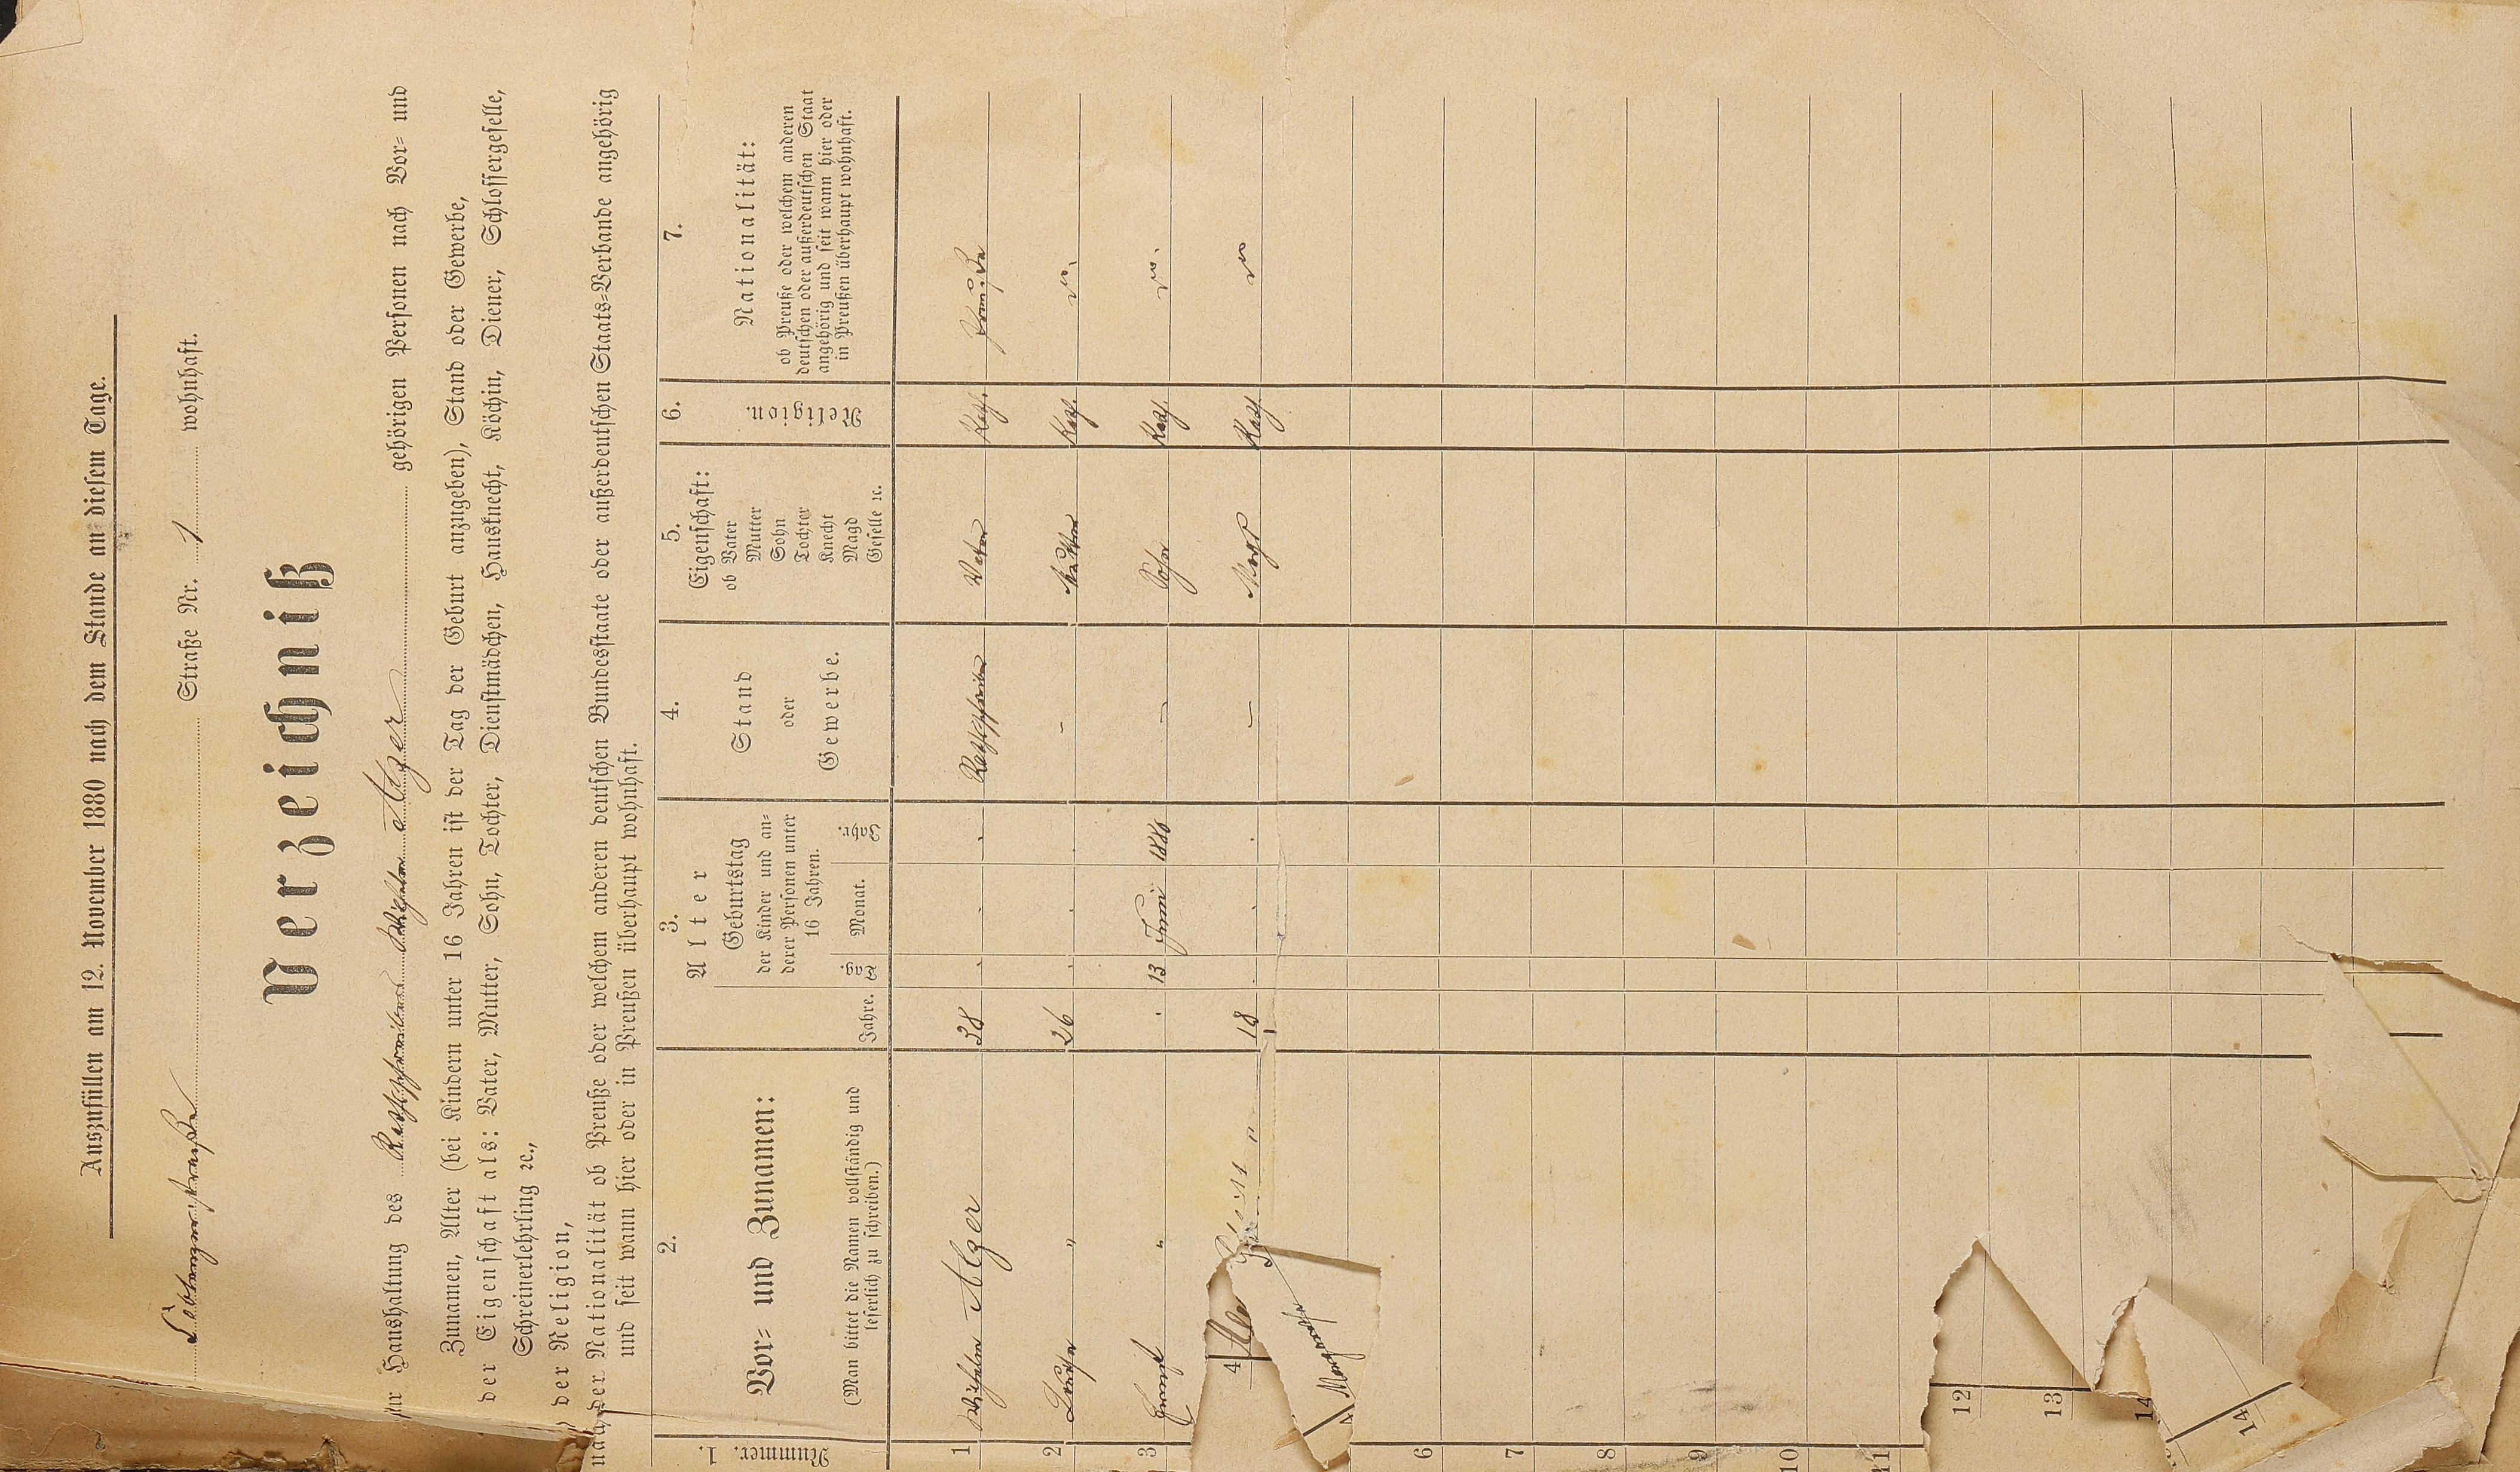 Auszufüllen am 12. November 1880 nach dem Stande an diesem Tage.
Straße Nr. 1 wohnhaft.
Verzeichniß
Haushaltung des Wilhelm Alzer gehörigen Personen nach Vor- und
Zunamen, Alter (bei Kindern unter 16 Jahren ist der Tag der Geburt anzugeben), Stand oder Gewerbe,
der Eigenschaft als: Vater, Mutter, Sohn, Tochter, Dienstmädchen, Hausknecht, Köchin, Diener, Schlossergeselle,
Schreinerlehrling ꝛc.,
der Religion,
der Nationalität ob Preuße oder welchem anderen deutschen Bundesstaate oder außerdeutschen Staats-Verbande angehörig
und seit wann hier oder in Preußen überhaupt wohnhaft.
1. Nummer.
2. Vor- und Zunamen:
(Man bittet die Namen vollständig und
leserlich zu schreiben.)
3. Alter
Jahre.
Geburtstag
der Kinder und an-
derer Personen unter
16 Jahren.
Tag. Monat. Jahr.
4. Stand
oder
Gewerbe.
5. Eigenschaft:
ob Vater
Mutter
Sohn
Tochter
Knecht
Magd
Geselle ꝛc.
6. Religion.
7. Nationalität:
ob Preuße oder welchem anderen
deutschen oder außerdeutschen Staat
angehörig und seit wann hier oder
in Preußen überhaupt wohnhaft.
1 Wilhelm Alzer 38 Vater Kath. Preuße
2 " 26 – Mutter Kath. do.
3 Ernst " 13 Juni 1880 – Sohn Kath. do.
4 18 – Magd Kath. do
Margaretha
6
7
8
9
10
11
12
13
14
14